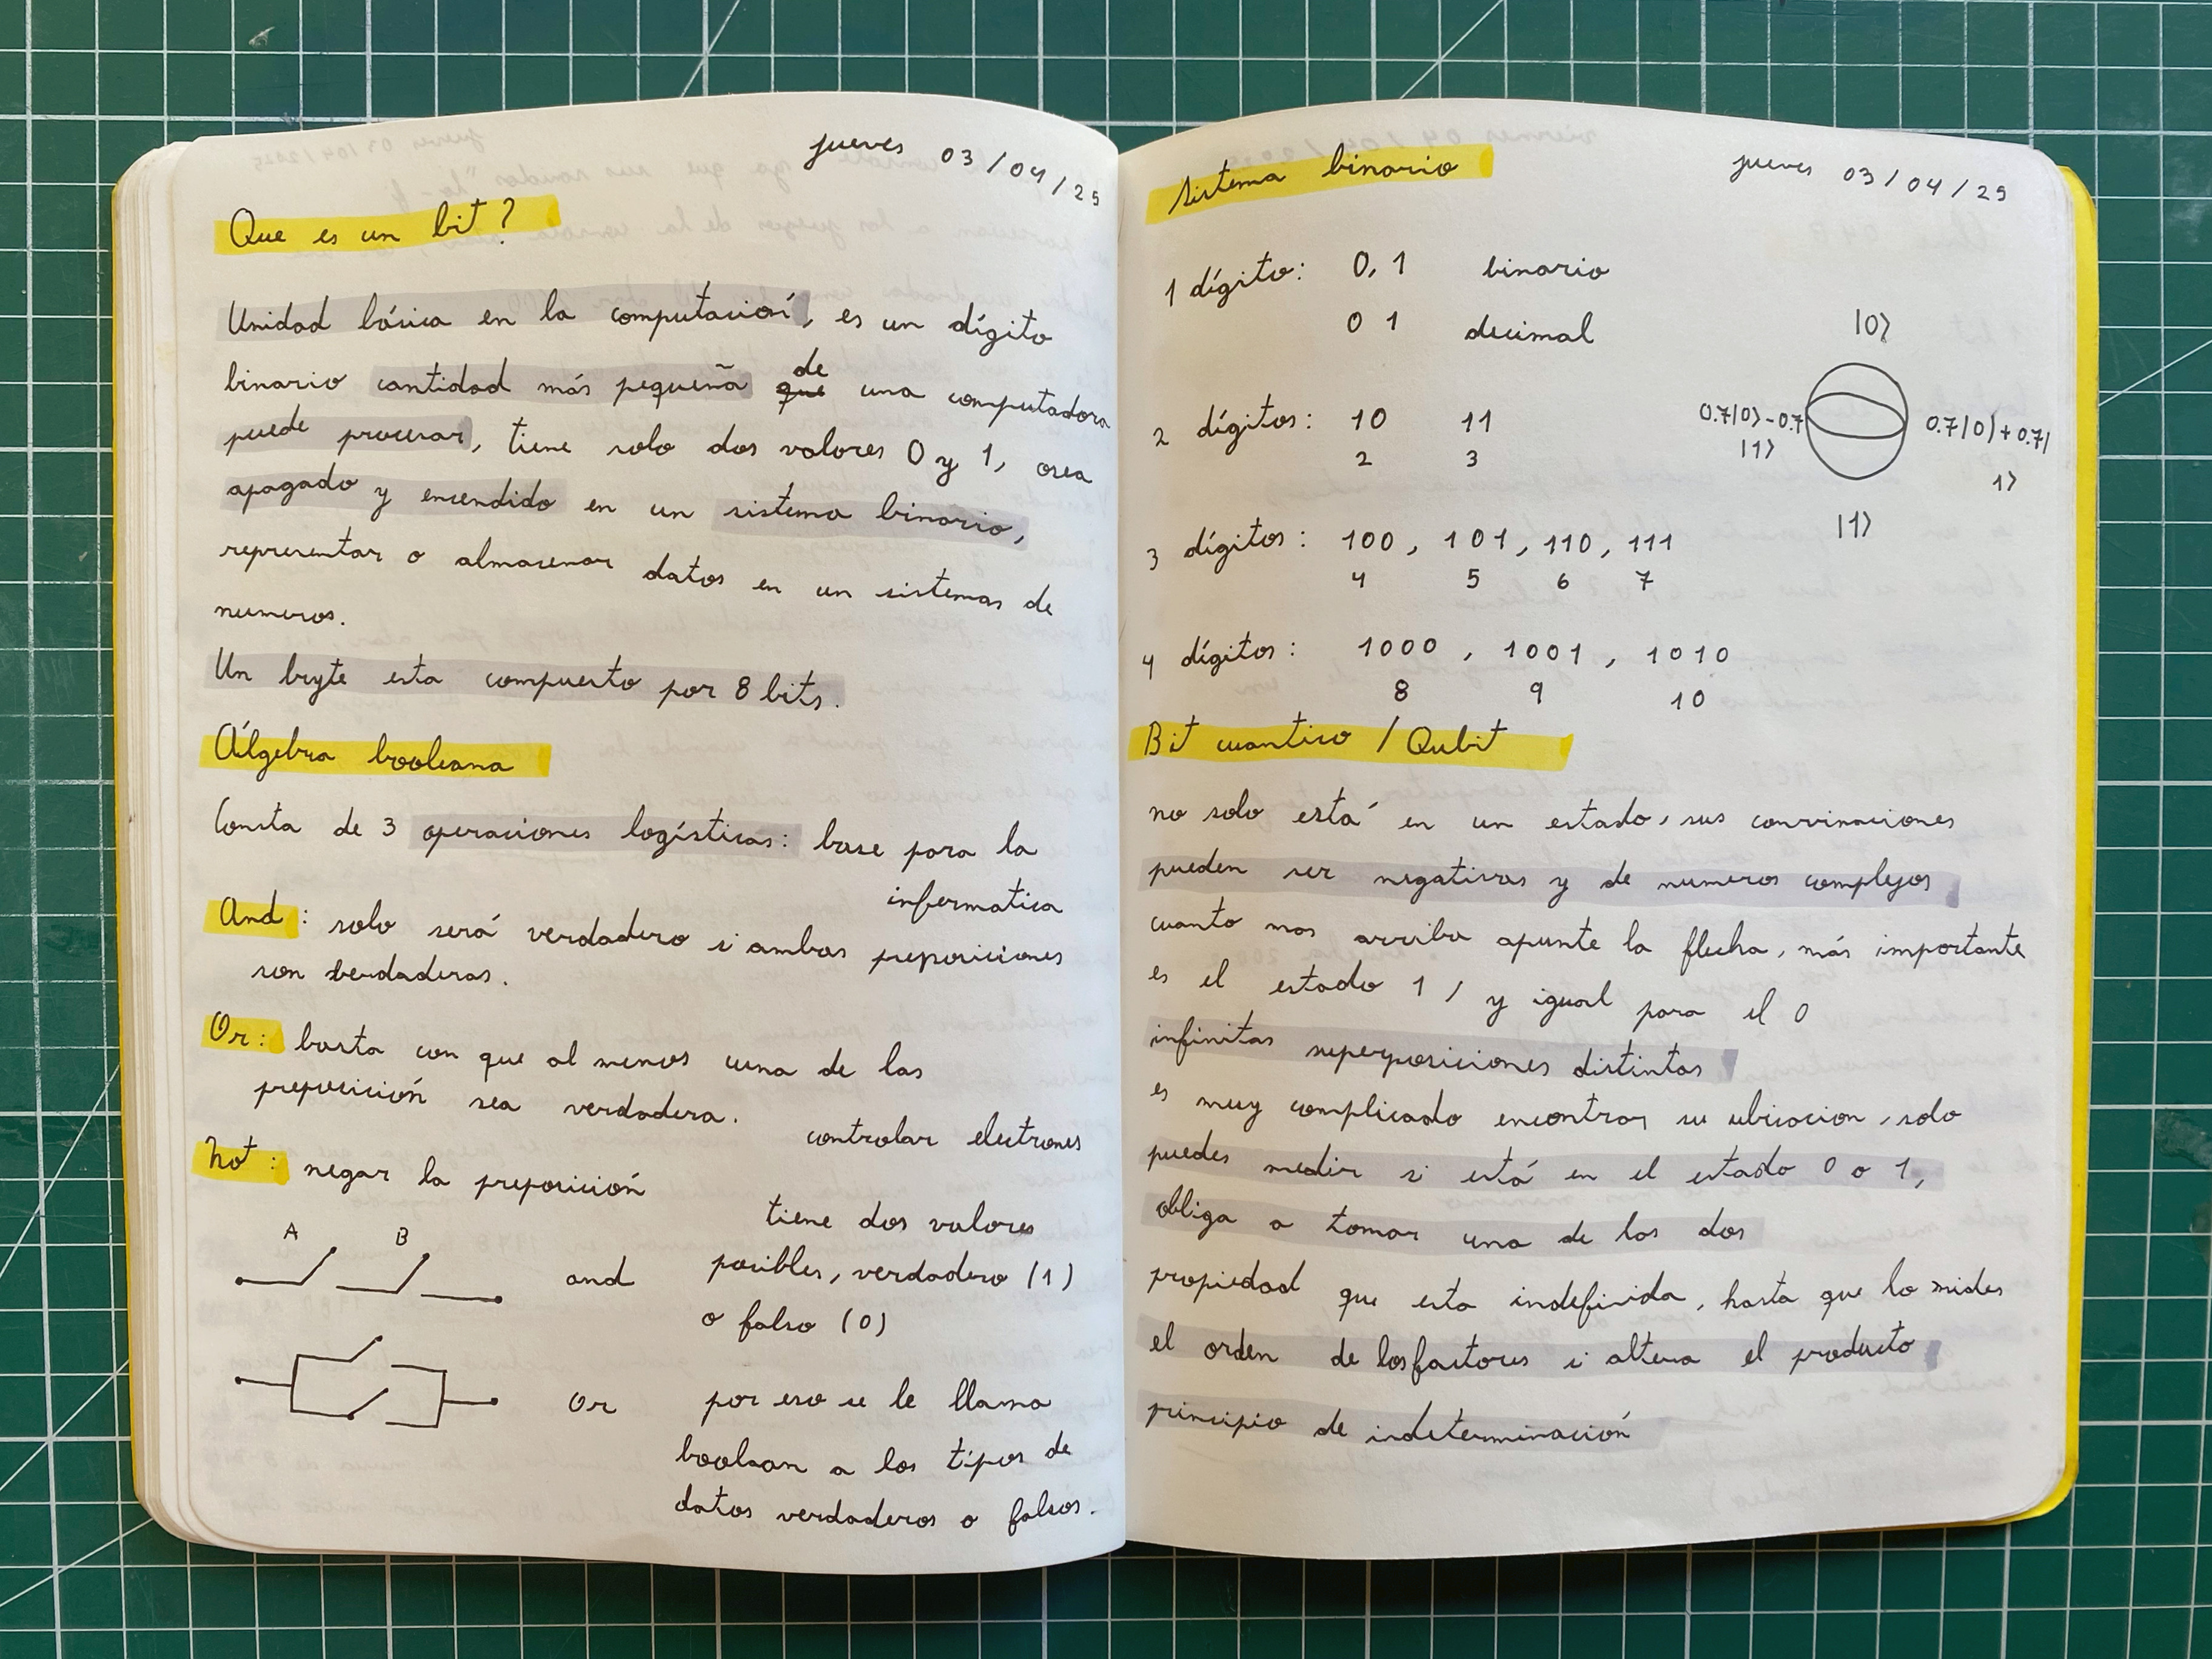 jueves 03/04/25
Que es un bit?
Unidad básica en la computación, es un dígito
binario cantidad más pequeña de
que una computadora
puede procesar, tiene solo dos valores 0 y 1, osea
apagado y encendido en un sistema binario,
representar o almacenar datos en un sistemas de
numeros.
Un bryte esta compuesto por 8 bits.
Álgebra booleana
Consta de 3 operaciones logísticas: base para la
informatica
And: solo será verdadero si ambas preposiciones
son berdaderas.
Or: basta con que al menos una de las
preposición sea verdadera.
controlar electrones
Not: negar la preposición
tiene dos valores
posibles, verdadero (1)
o falso (0)
A B
and
Or
por eso se le llama
boolean a los tipos de
datos verdaderos o falsos.
Sistema binario
jueves 03/04/25
1 dígito: 0, 1 binario
0 1 decimal
2 dígitos: 10 11
2 3
3 dígitos: 100, 101, 110, 111
4 5 6 7
4 dígitos: 1000, 1001, 1010
8 9 10
|0⟩
0.7|0⟩-0.7
|1⟩
0.7|0⟩+0.7|
1⟩
|1⟩
Bit cuantico / Qubit
no solo está en un estado, sus convinaciones
pueden ser negativas y de numeros complejos
cuanto mas arriba apunte la flecha, más importante
es el estado 1, y igual para el 0
infinitas superposiciones distintas
es muy complicado encontrar su ubicacion, solo
puedes medir si está en el estado 0 o 1,
obliga a tomar una de las dos
propiedad que esta indefinida, hasta que lo mides
el orden de los factores si altera el producto
principio de indeterminación